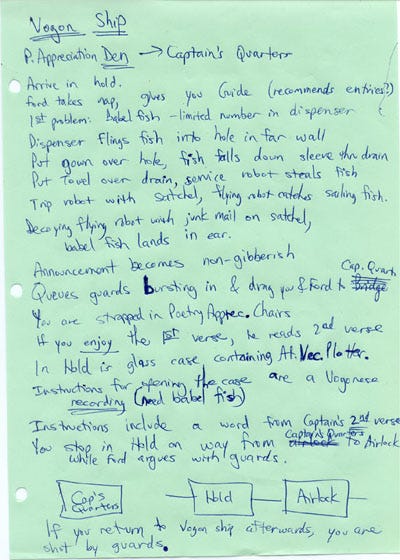 Vogon Ship
P. Appreciation Den → Captain's Quarters
Arrive in hold.
Ford takes nap, gives you Guide (recommends entries?)
1st problem: Babel fish - limited number in dispenser
Dispenser flings fish into hole in far wall
Put gown over hole, fish falls down sleeve thru drain
Put towel over drain, service robot steals fish
Trip robot with satchel, flying robot catches sailing fish.
Decoying flying robot with junk mail on satchel,
babel fish lands in ear.
Announcement becomes non-gibberish
Cap. Quarts
Queues guards bursting in & drag you & Ford to Bridge
You are strapped in Poetry Apprec. Chairs
If you enjoy the 1st verse, he reads 2nd verse
In Hold is glass case containing At. Vec. Plotter.
Instructions for opening the case are a Vogonese
recording (need babel fish)
Instructions include a word from Captain's 2nd verse
Captain's Quarters
You stop in Hold on way from to Airlock
while Ford argues with guards.
Cap's Quarters
Hold
Airlock
If you return to Vogon ship afterwards, you are
shot by guards.